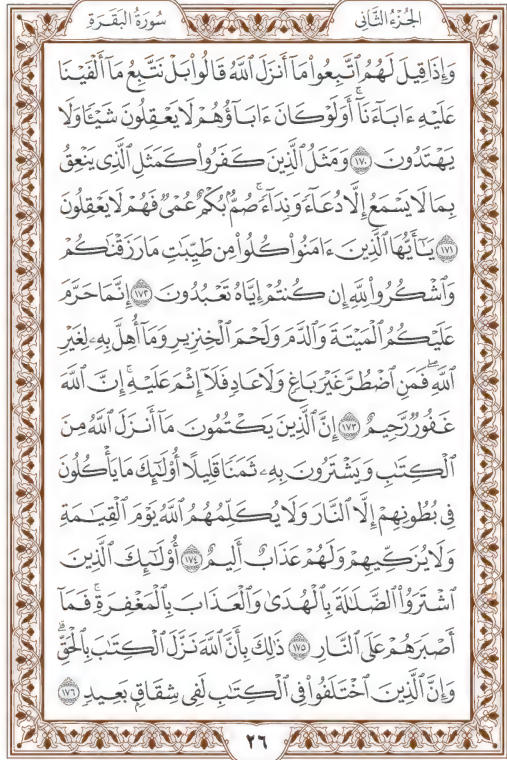 الجُزْءُ الثَّانِي
سُورَةُ البَقَرَةِ
وَإِذَا قِيلَ لَهُمُ ٱتَّبِعُوا۟ مَآ أَنزَلَ ٱللَّهُ قَالُوا۟ بَلْ نَتَّبِعُ مَآ أَلْفَيْنَا
عَلَيْهِ ءَابَآءَنَآ ۗ أَوَلَوْ كَانَ ءَابَآؤُهُمْ لَا يَعْقِلُونَ شَيْـًٔا وَلَا
يَهْتَدُونَ ١٧٠ وَمَثَلُ ٱلَّذِينَ كَفَرُوا۟ كَمَثَلِ ٱلَّذِى يَنْعِقُ
بِمَا لَا يَسْمَعُ إِلَّا دُعَآءً وَنِدَآءً ۚ صُمٌّۢ بُكْمٌ عُمْىٌ فَهُمْ لَا يَعْقِلُونَ
١٧١ يَـٰٓأَيُّهَا ٱلَّذِينَ ءَامَنُوا۟ كُلُوا۟ مِن طَيِّبَـٰتِ مَا رَزَقْنَـٰكُمْ
وَٱشْكُرُوا۟ لِلَّهِ إِن كُنتُمْ إِيَّاهُ تَعْبُدُونَ ١٧٢ إِنَّمَا حَرَّمَ
عَلَيْكُمُ ٱلْمَيْتَةَ وَٱلدَّمَ وَلَحْمَ ٱلْخِنزِيرِ وَمَآ أُهِلَّ بِهِۦ لِغَيْرِ
ٱللَّهِ ۖ فَمَنِ ٱضْطُرَّ غَيْرَ بَاغٍ وَلَا عَادٍ فَلَآ إِثْمَ عَلَيْهِ ۚ إِنَّ ٱللَّهَ
غَفُورٌ رَّحِيمٌ ١٧٣ إِنَّ ٱلَّذِينَ يَكْتُمُونَ مَآ أَنزَلَ ٱللَّهُ مِنَ
ٱلْكِتَـٰبِ وَيَشْتَرُونَ بِهِۦ ثَمَنًا قَلِيلًا ۙ أُو۟لَـٰٓئِكَ مَا يَأْكُلُونَ
فِى بُطُونِهِمْ إِلَّا ٱلنَّارَ وَلَا يُكَلِّمُهُمُ ٱللَّهُ يَوْمَ ٱلْقِيَـٰمَةِ
وَلَا يُزَكِّيهِمْ وَلَهُمْ عَذَابٌ أَلِيمٌ ١٧٤ أُو۟لَـٰٓئِكَ ٱلَّذِينَ
ٱشْتَرَوُا۟ ٱلضَّلَـٰلَةَ بِٱلْهُدَىٰ وَٱلْعَذَابَ بِٱلْمَغْفِرَةِ ۚ فَمَآ
أَصْبَرَهُمْ عَلَى ٱلنَّارِ ١٧٥ ذَٰلِكَ بِأَنَّ ٱللَّهَ نَزَّلَ ٱلْكِتَـٰبَ بِٱلْحَقِّ ۗ
وَإِنَّ ٱلَّذِينَ ٱخْتَلَفُوا۟ فِى ٱلْكِتَـٰبِ لَفِى شِقَاقٍۭ بَعِيدٍ ١٧٦
٢٦